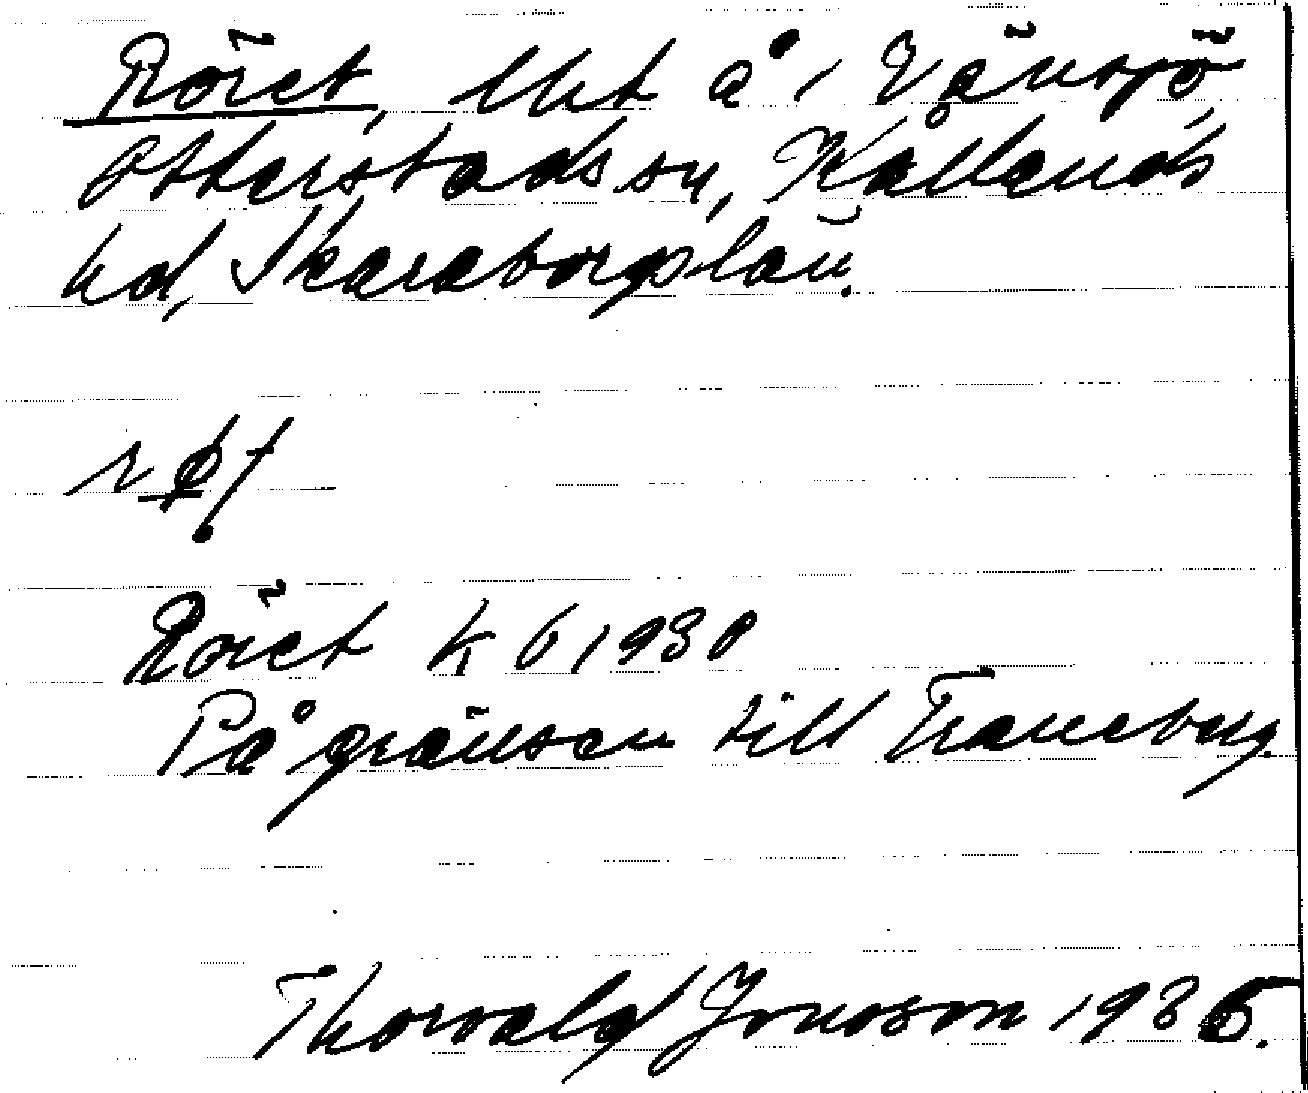 Röret, lht å i Vänsjö,
Otterstads sn, Kållands
hd, Skaraborgs län.
Röret K 6 1930
På gränsen till Traneberg.
Thorvald Jonsson 1935.